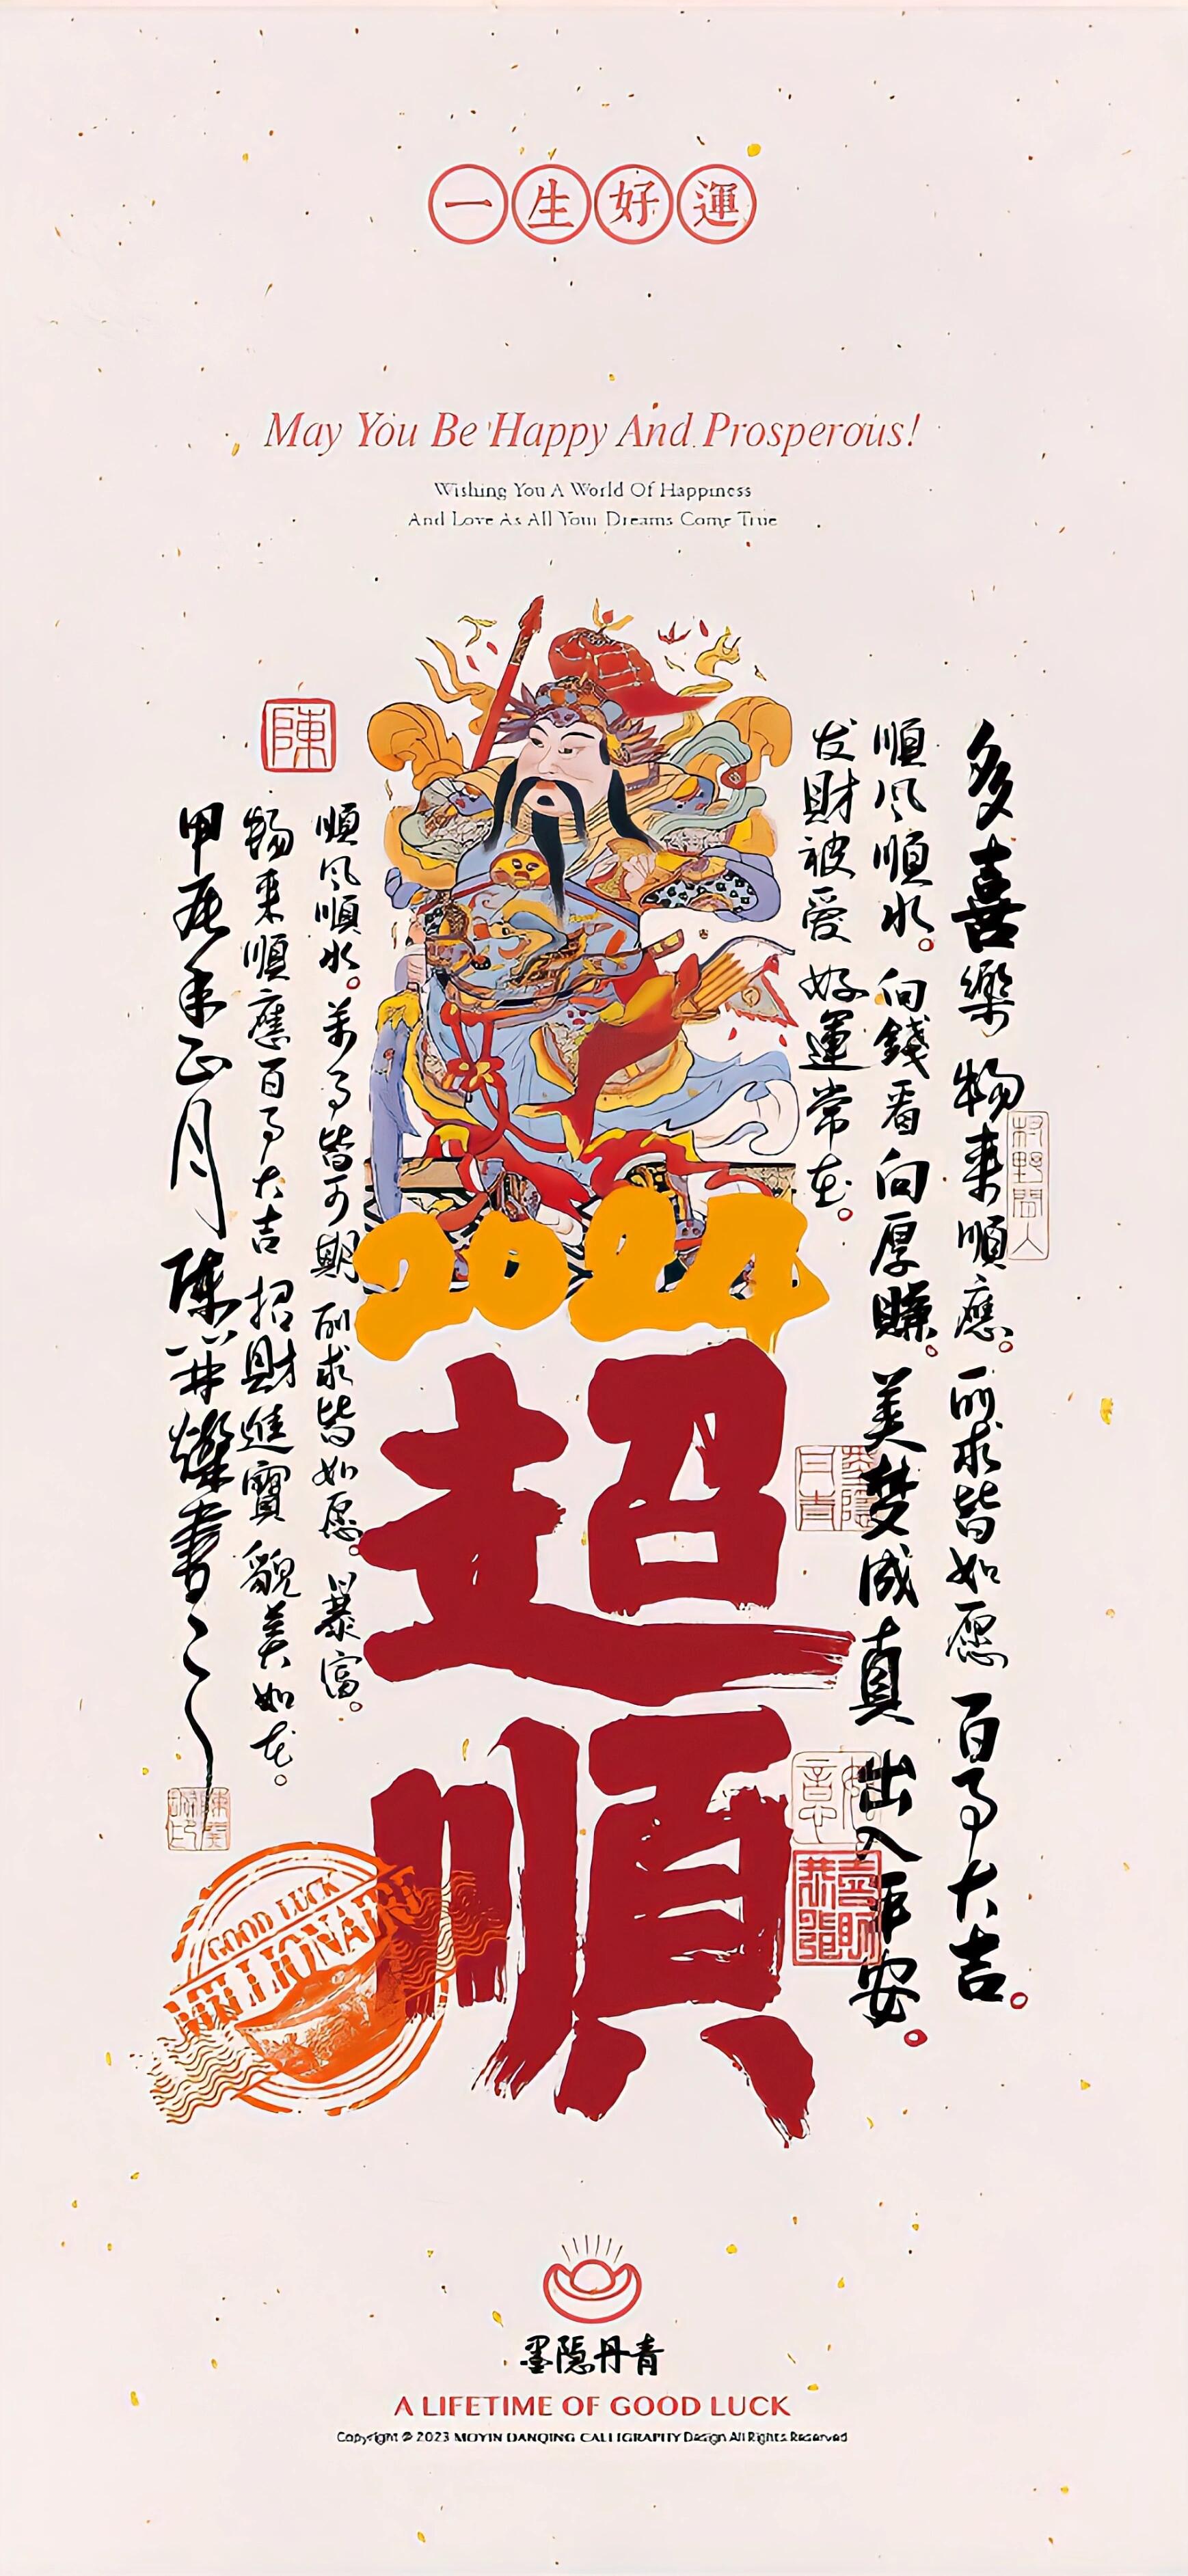 一生好運
May You Be Happy And Prosperous!
Wishing You A World Of Happiness
And Love As All Your Dreams Come True
多喜樂 物来順應。所求皆如愿 百事大吉。
順风順水。向錢看向厚賺。美梦成真 出入平安。
发財被爱 好運常在。
2024
超順
順风順水。萬事皆可期 所求皆如愿。暴富。
物来順應百事大吉 招財進寶 貌美如花。
甲辰年正月 陳
書
陳
恭喜發財
GOOD LUCK
MILLIONAIRE
墨隱丹青
A LIFETIME OF GOOD LUCK
Copyright © 2023 MOYIN DANQING CALLIGRAPHY Design All Rights Reserved